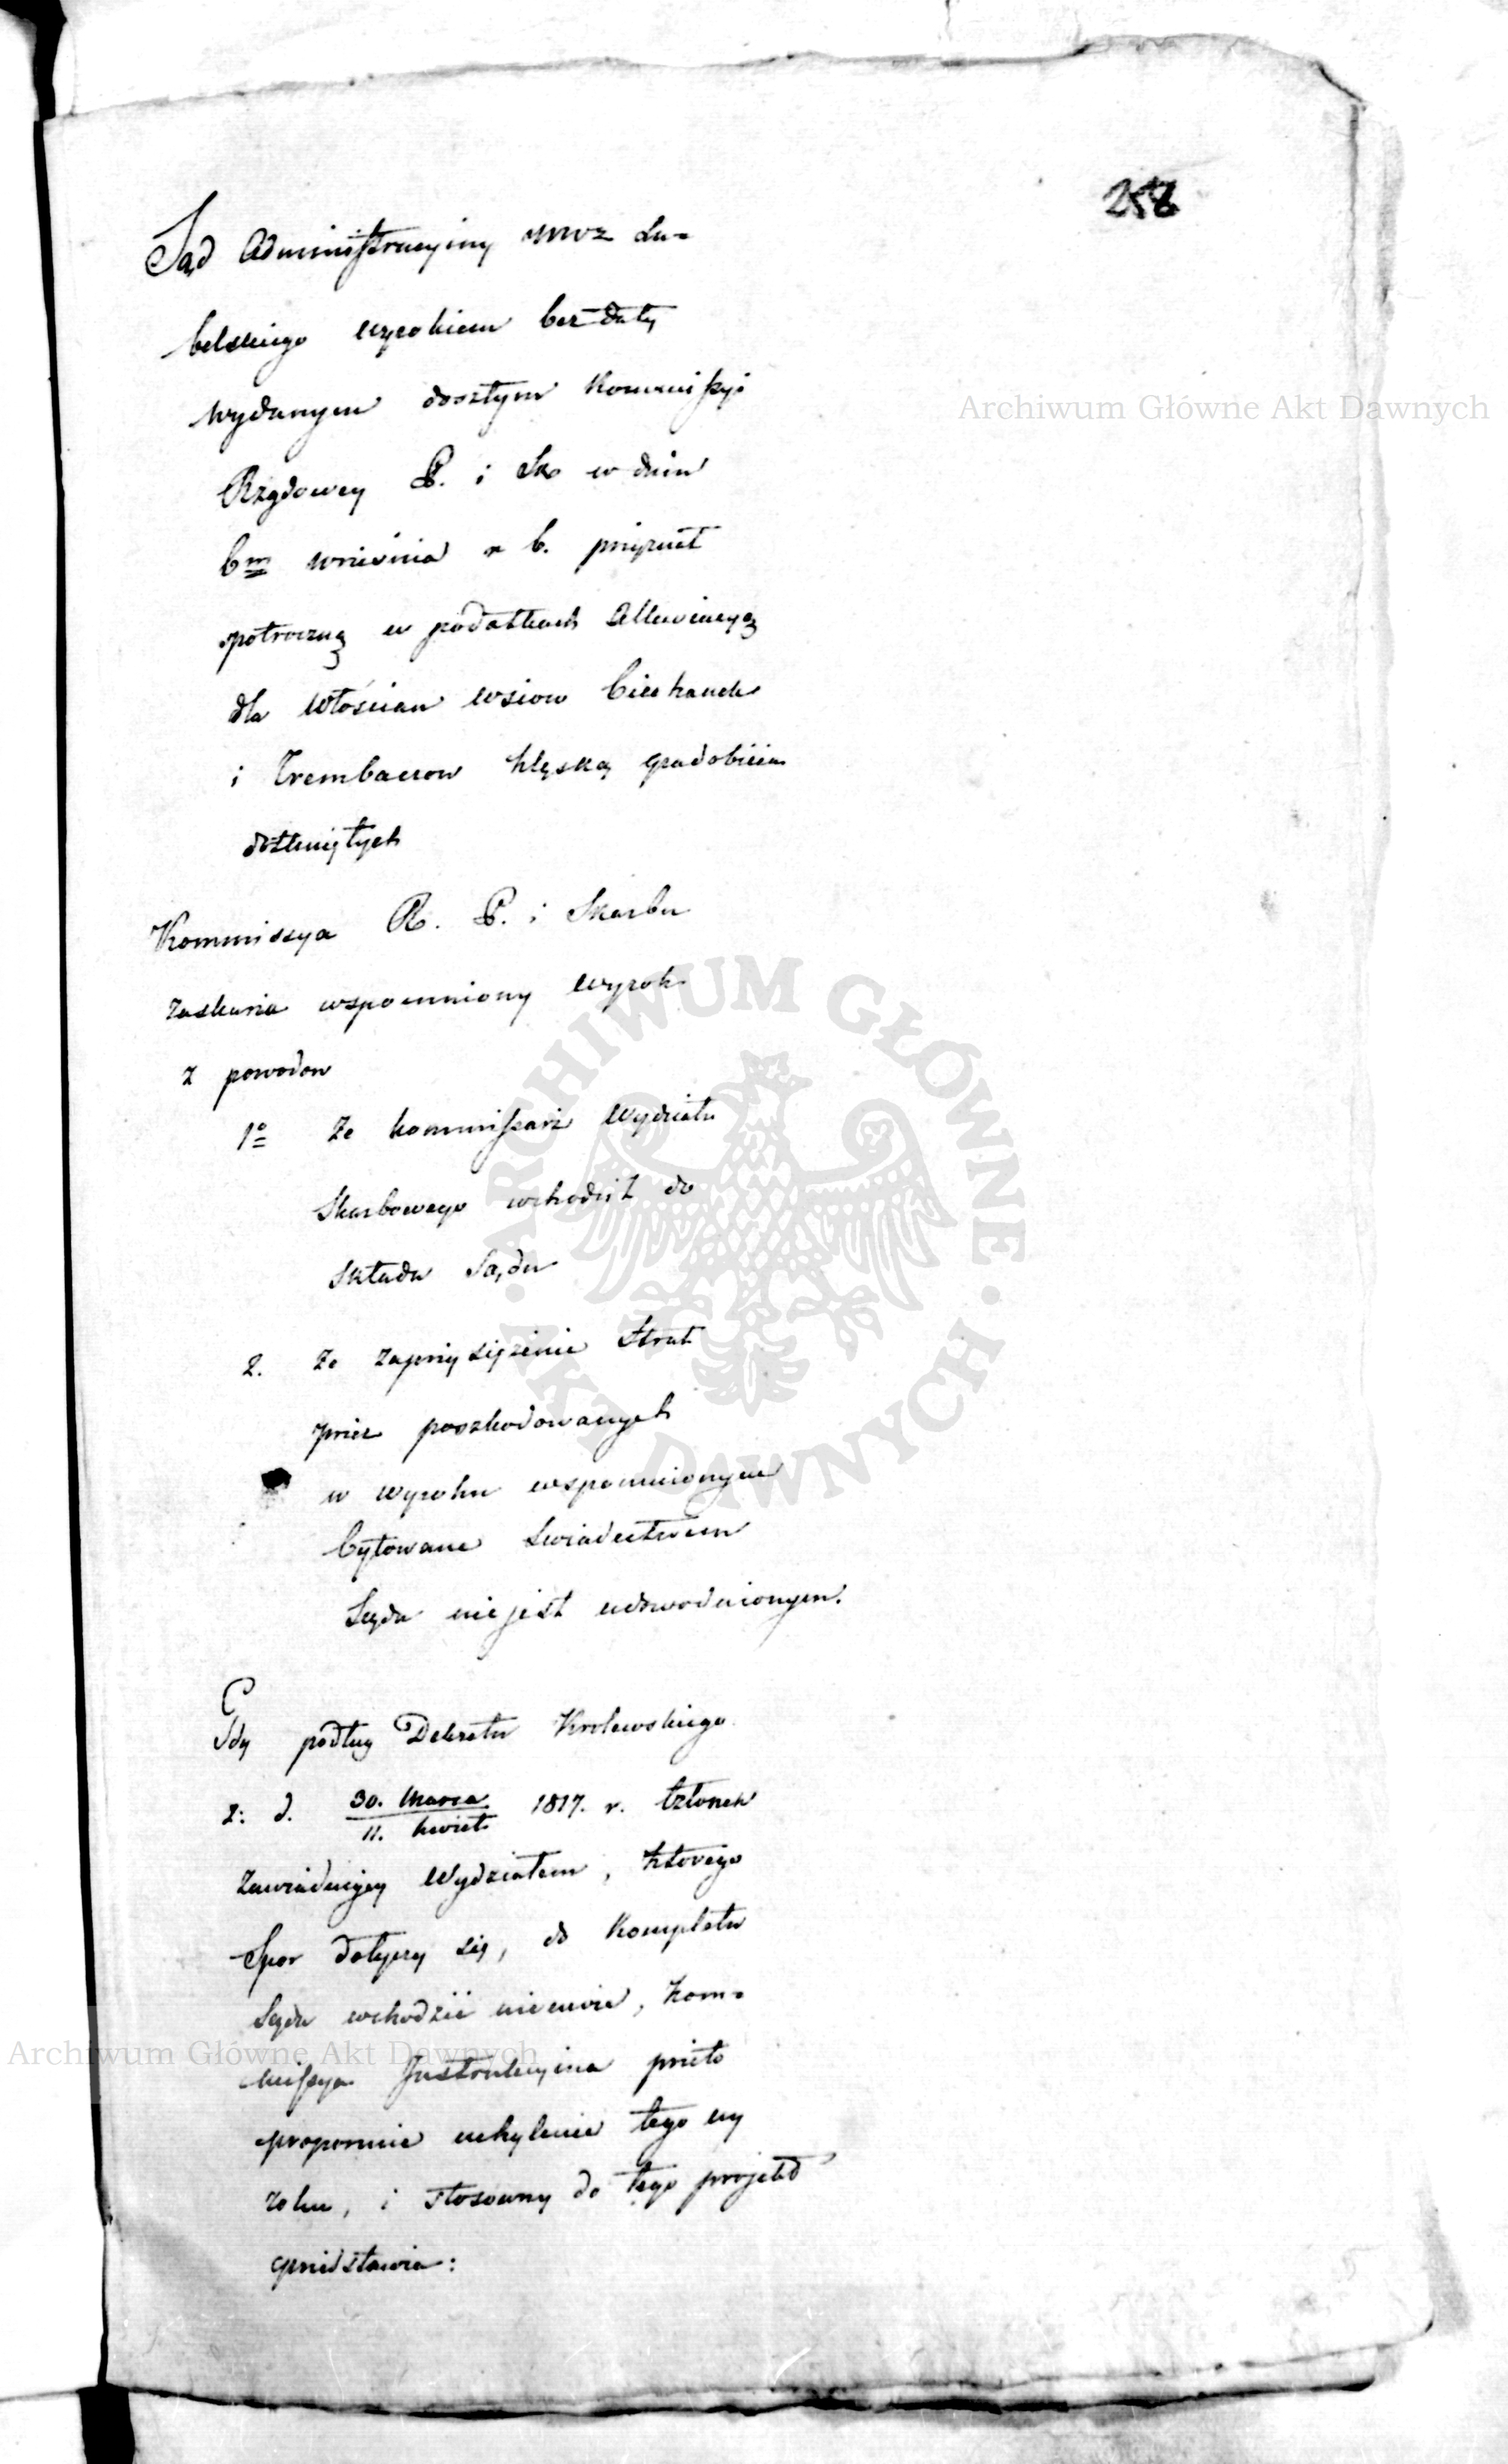 258
Sąd Administracyiny Woz Lu=
belskiego wyrokiem bez daty
wydanym doszłym Kommissyi
Rządowey P. i Sk w dniu
6m września r b. przyznał
półroczną w podatkach Allewiacyą
dla Włościan wsiow Ciechanek
i Trembaczow klęską gradobicia
dotkniętych
Kommissya R. P. i Skarbu
zaskarża wspomniony wyrok
z powodow
1o Że kommissarz Wydziału
Skarbowego wchodził do
składu Sądu
2. Że zaprzysiężenie Strat
przez poszkodowanych
w wyroku wspomnionym
Cytowane Swiadectwem
Sądu nie jest udowodnionym.
Gdy podług Dekretu Krolewskiego
z: d. 30. Marca / 11. Kwiet 1817. r. Członek
Zawiaduiący Wydziałem, którego
Spor dotyczy się, do Kompletu
Sądu wchodzić niemoże, Kom=
missya Instrukcyina przeto
proponuie uchylenie tego wy
roku, i stosowny do tego projekt
przedstawia:
Archiwum Główne Akt Dawnych
ARCHIWUM GŁÓWNE · AKT DAWNYCH ·
Archiwum Główne Akt Dawnych